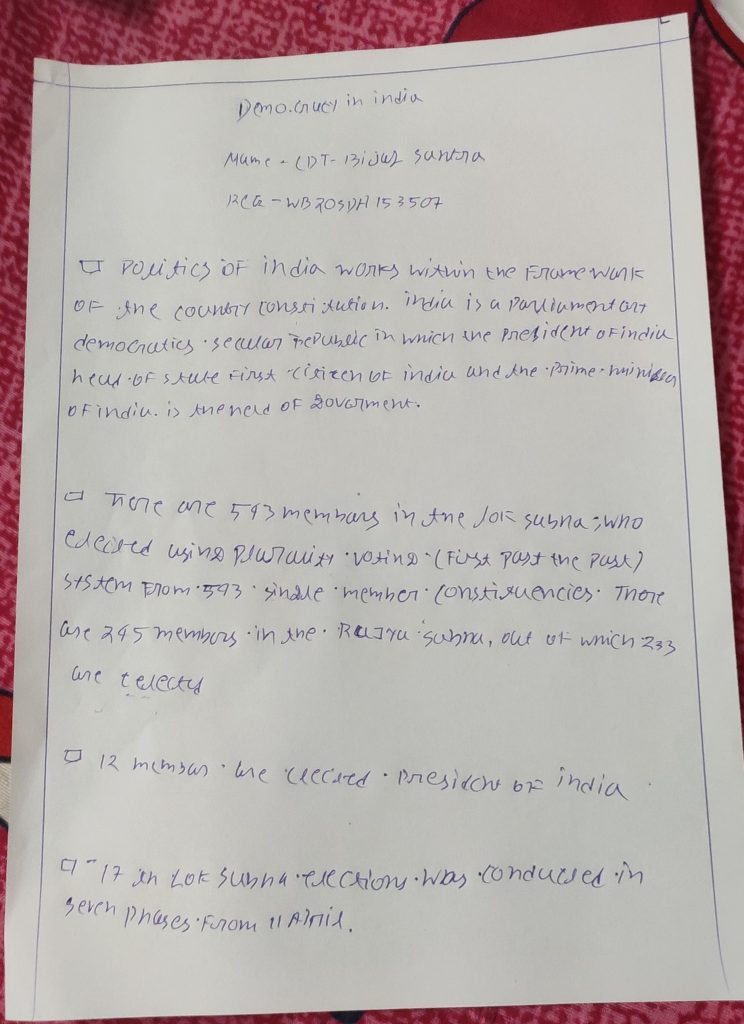 Democracy in india
Name - CDT - Bijay Santra
REG - WB20SDH153507
Politics OF india works within the Framework
OF the country constitution. india is a Parliamentary
democratics secular Republic in which the President of india
head of state First citizen of india and the Prime minister
of india. is the head OF Goverment.
There are 543 members in the lok subha, who
elected using Plurality voting (First Past the Past)
system From 543 single member constituencies. There
are 245 members in the Rajya subha, out of which 233
are
12 member are elected President OF india
17 th Lok Subha elections was conducted in
seven phases From 11 April.